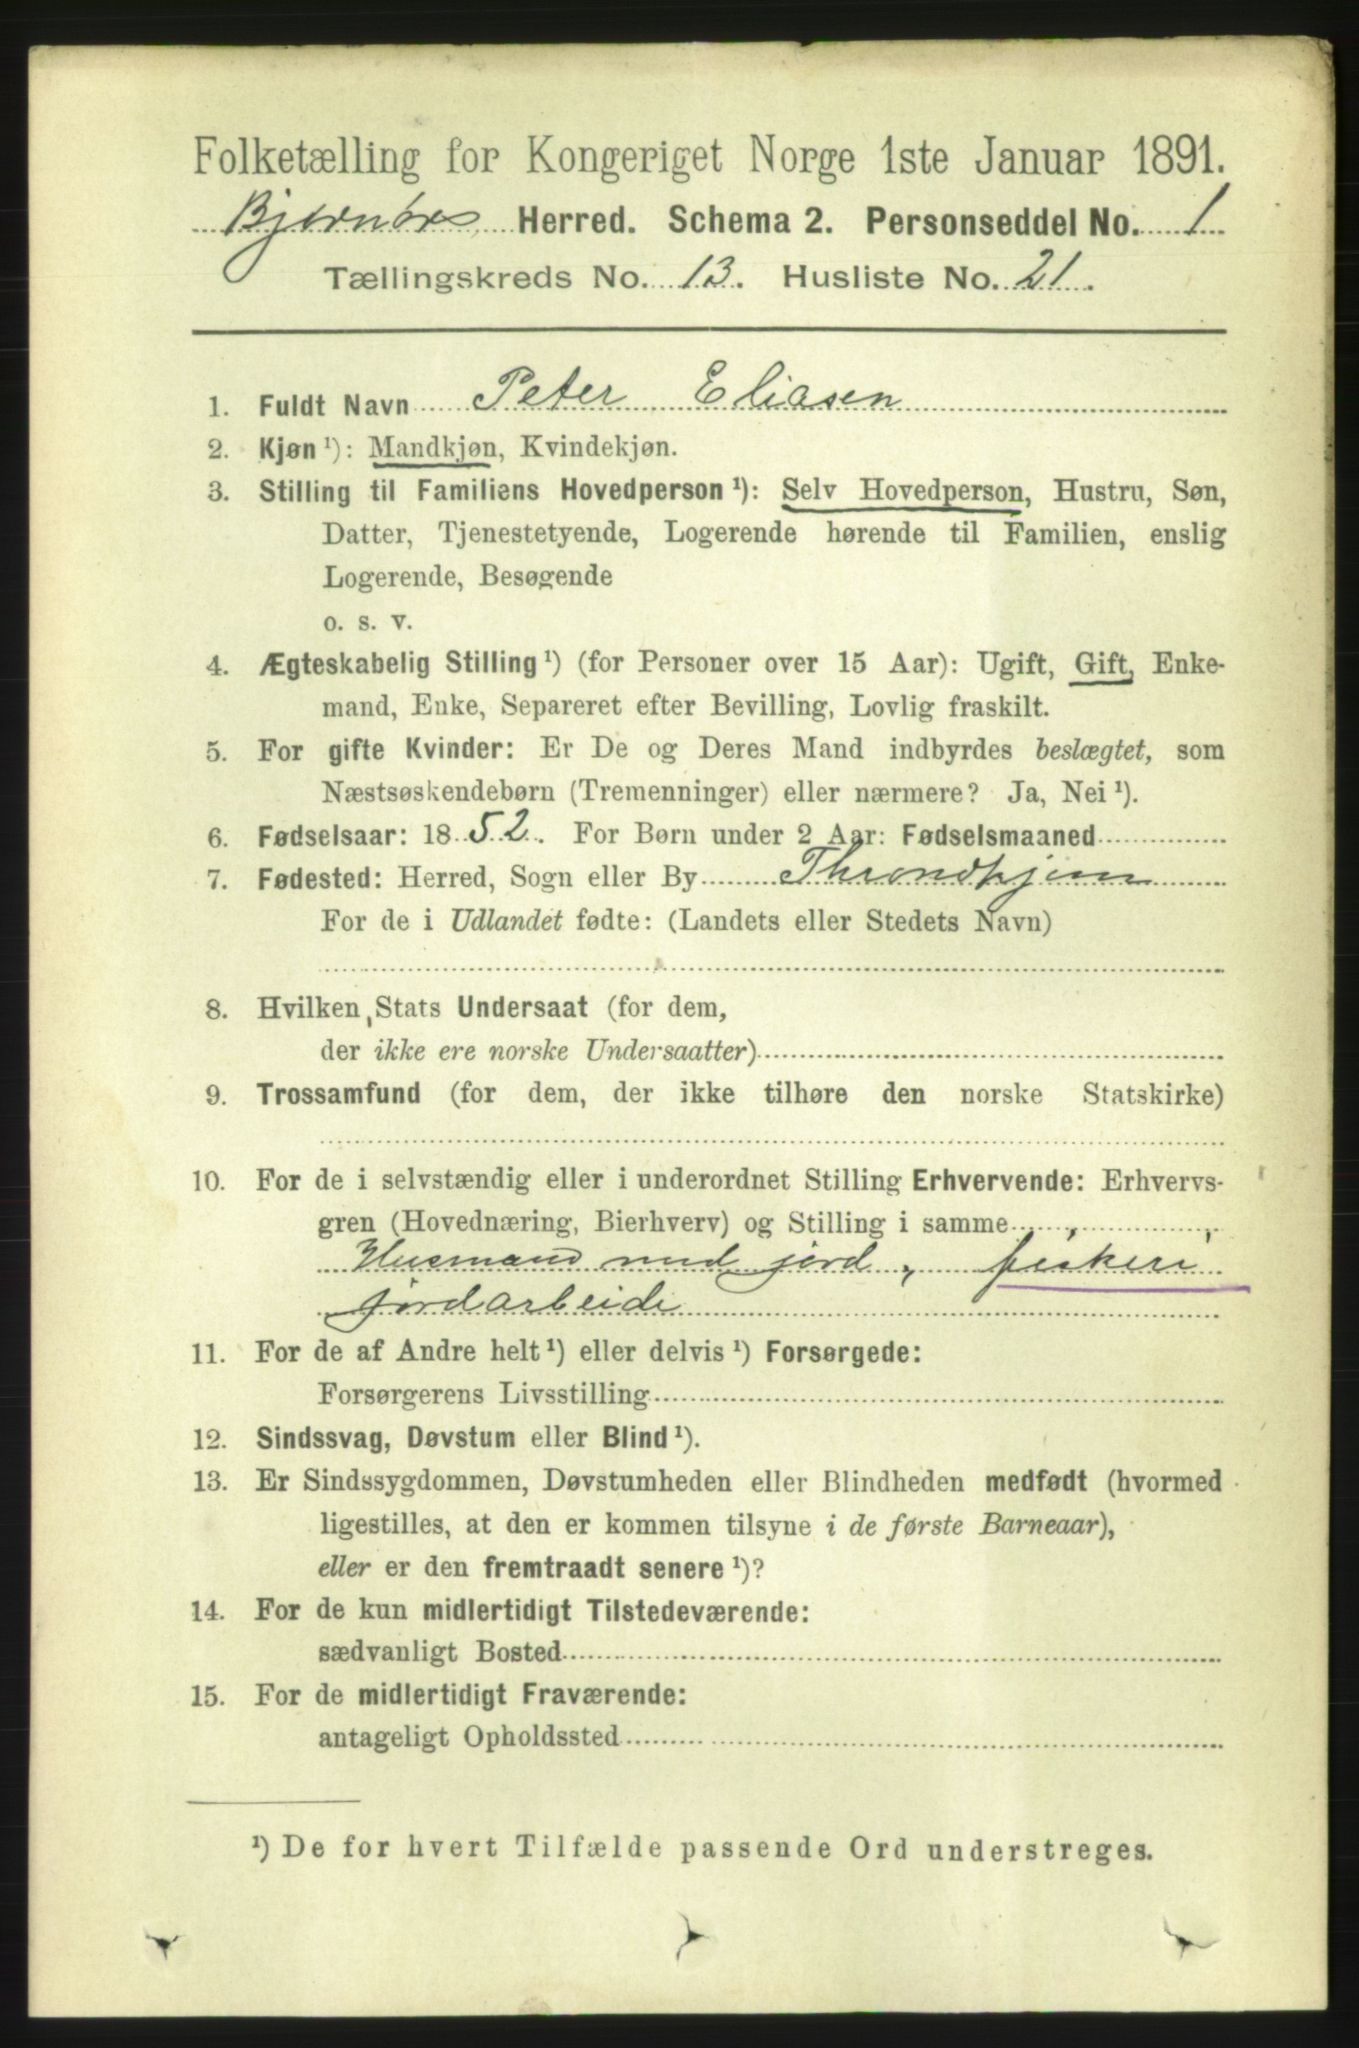 Folketælling for Kongeriget Norge 1ste Januar 1891.
Bjørnørs Herred. Schema 2. Personseddel No. 1
Tællingskreds No. 13. Husliste No. 21.
1. Fuldt Navn Peter Eliasen
2. Kjøn ¹): Mandkjøn, Kvindekjøn.
3. Stilling til Familiens Hovedperson ¹): Selv Hovedperson, Hustru, Søn,
Datter, Tjenestetyende, Logerende hørende til Familien, enslig
Logerende, Besøgende
o. s. v.
4. Ægteskabelig Stilling ¹) (for Personer over 15 Aar): Ugift, Gift, Enke-
mand, Enke, Separeret efter Bevilling, Lovlig fraskilt.
5. For gifte Kvinder: Er De og Deres Mand indbyrdes beslægtet, som
Næstsøskendebørn (Tremenninger) eller nærmere? Ja, Nei ¹).
6. Fødselsaar: 1852. For Børn under 2 Aar: Fødselsmaaned
7. Fødested: Herred, Sogn eller By Throndhjem
For de i Udlandet fødte: (Landets eller Stedets Navn)
8. Hvilken Stats Undersaat (for dem,
der ikke ere norske Undersaatter)
9. Trossamfund (for dem, der ikke tilhøre den norske Statskirke)
10. For de i selvstændig eller i underordnet Stilling Erhvervende: Erhvervs-
gren (Hovednæring, Bierhverv) og Stilling i samme
Husmand med jord, fiskeri,
jordarbeide
11. For de af Andre helt ¹) eller delvis ¹) Forsørgede:
Forsørgerens Livsstilling
12. Sindssvag, Døvstum eller Blind ¹).
13. Er Sindssygdommen, Døvstumheden eller Blindheden medfødt (hvormed
ligestilles, at den er kommen tilsyne i de første Barneaar),
eller er den fremtraadt senere ¹)?
14. For de kun midlertidigt Tilstedeværende:
sædvanligt Bosted
15. For de midlertidigt Fraværende:
antageligt Opholdssted
¹) De for hvert Tilfælde passende Ord understreges.